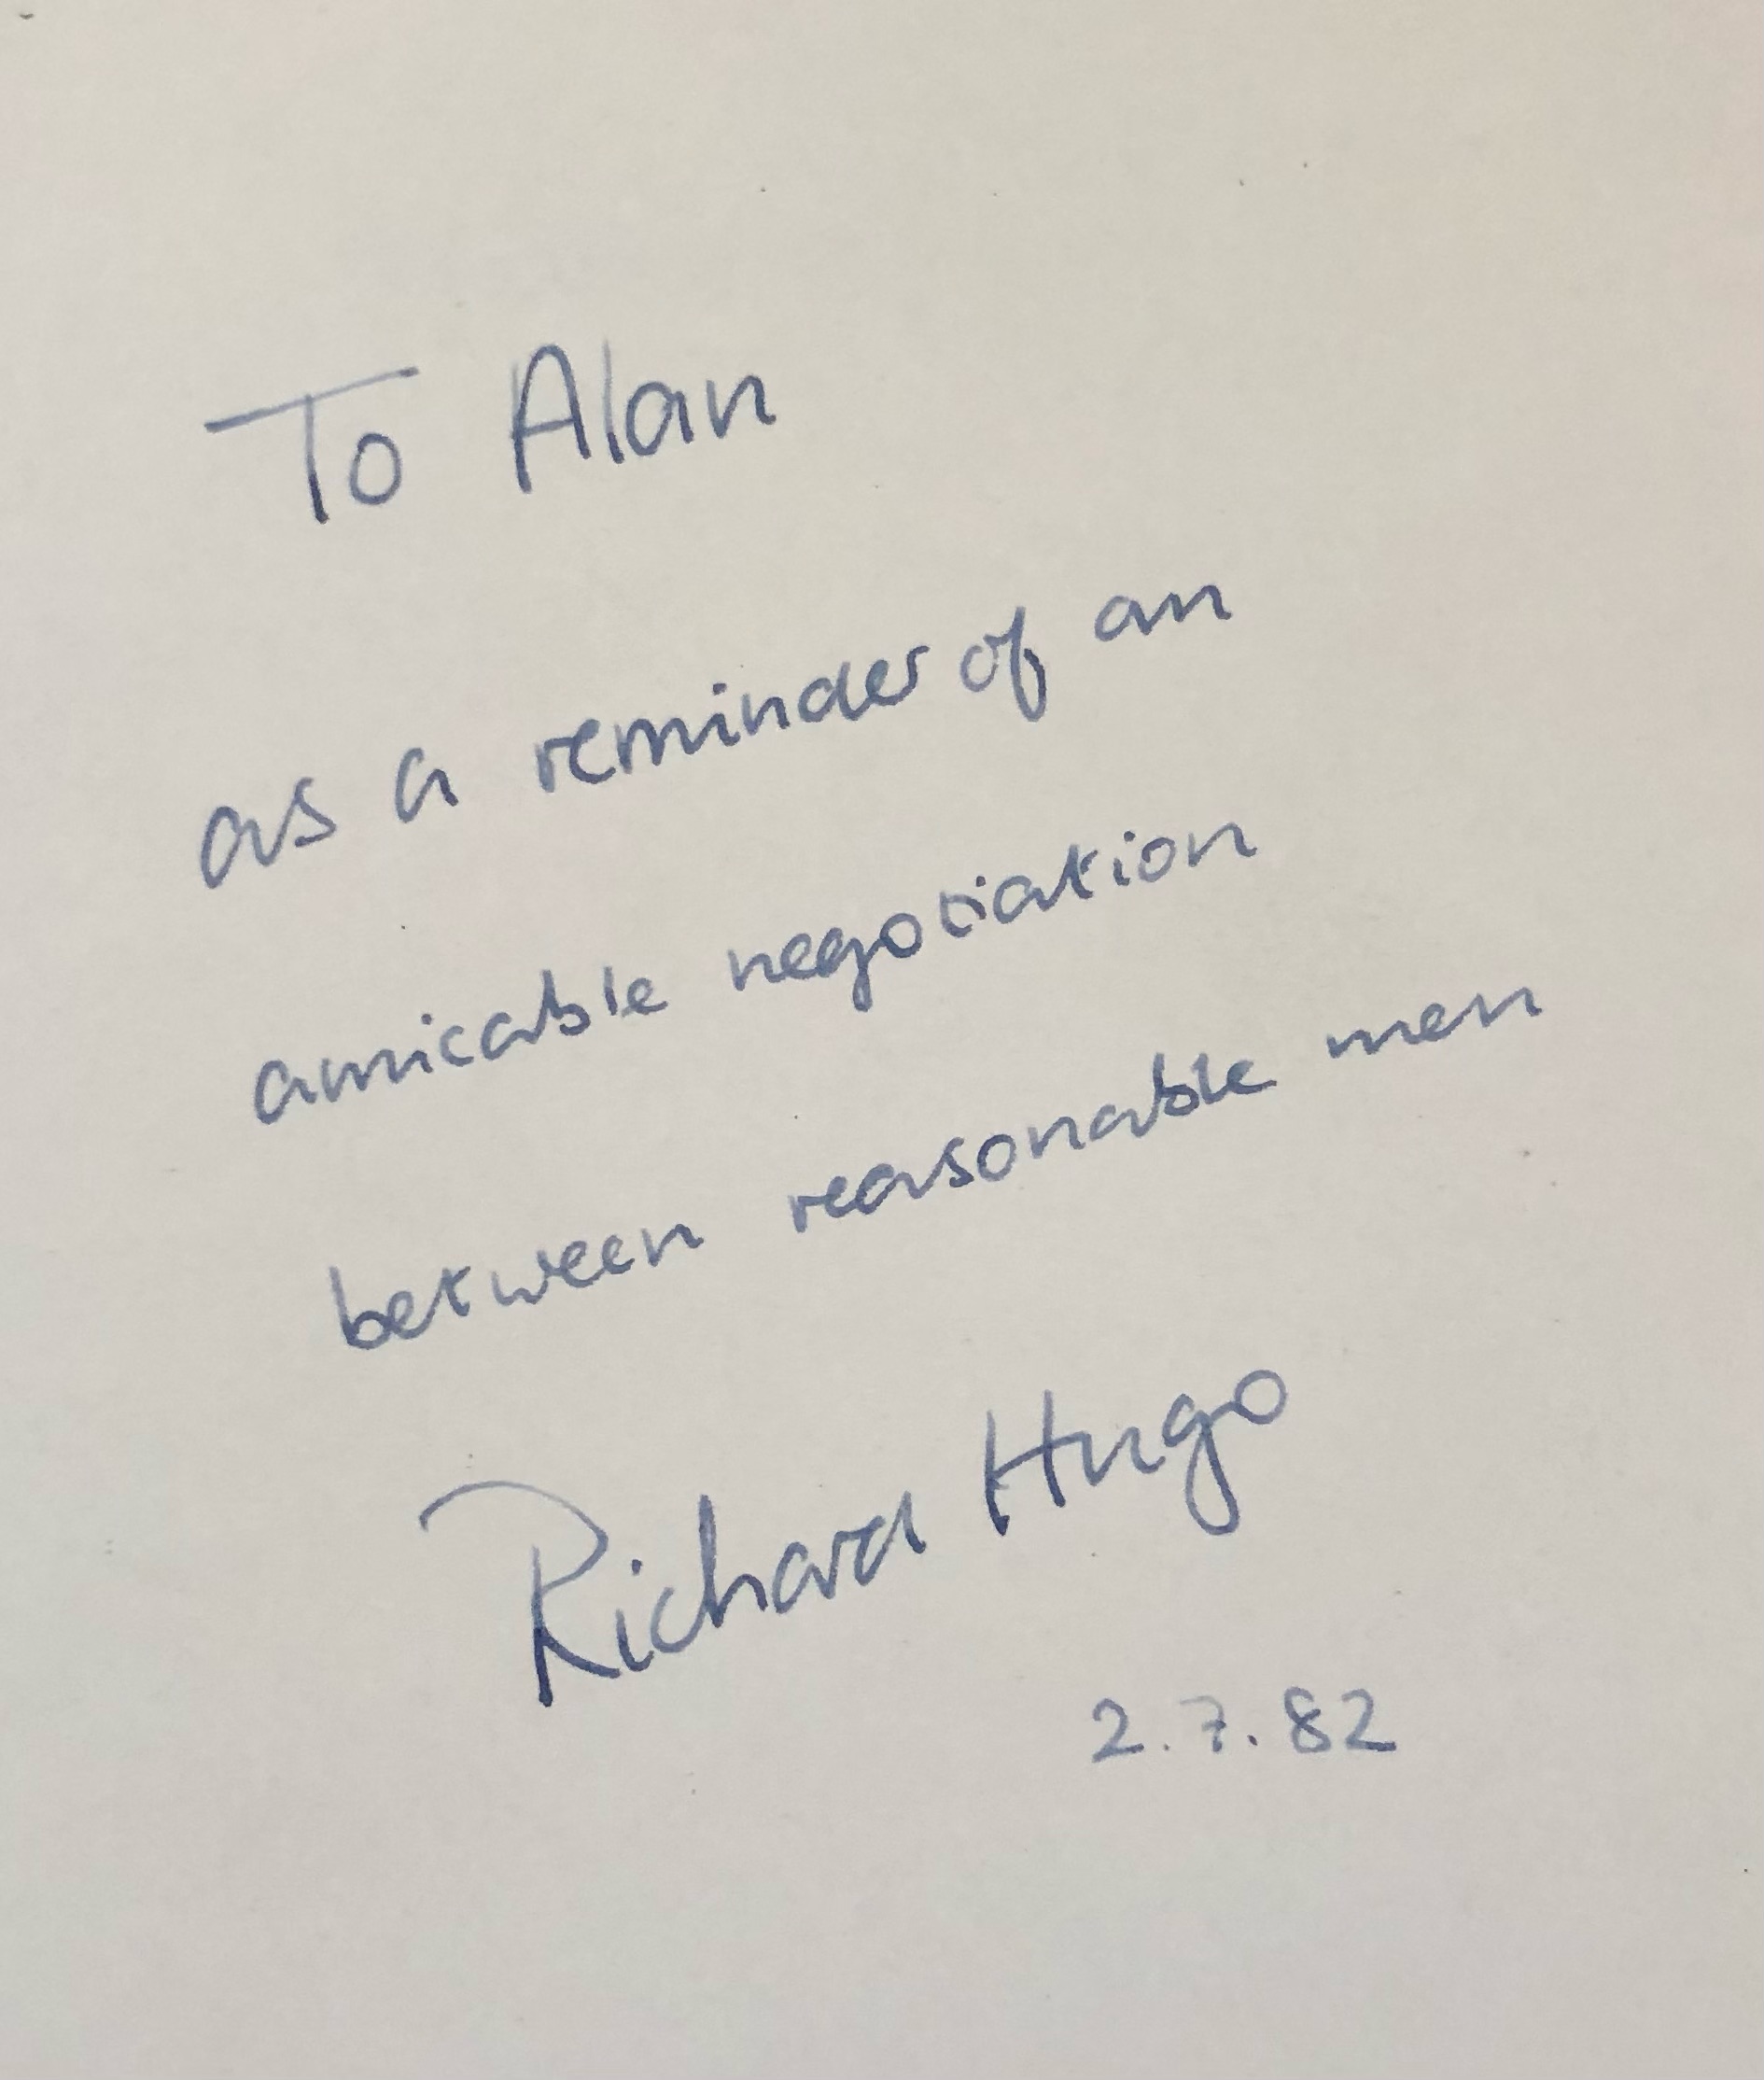 To Alan
as a reminder of an
amicable negotiation
between reasonable men
Richard Hugo
2.7.82